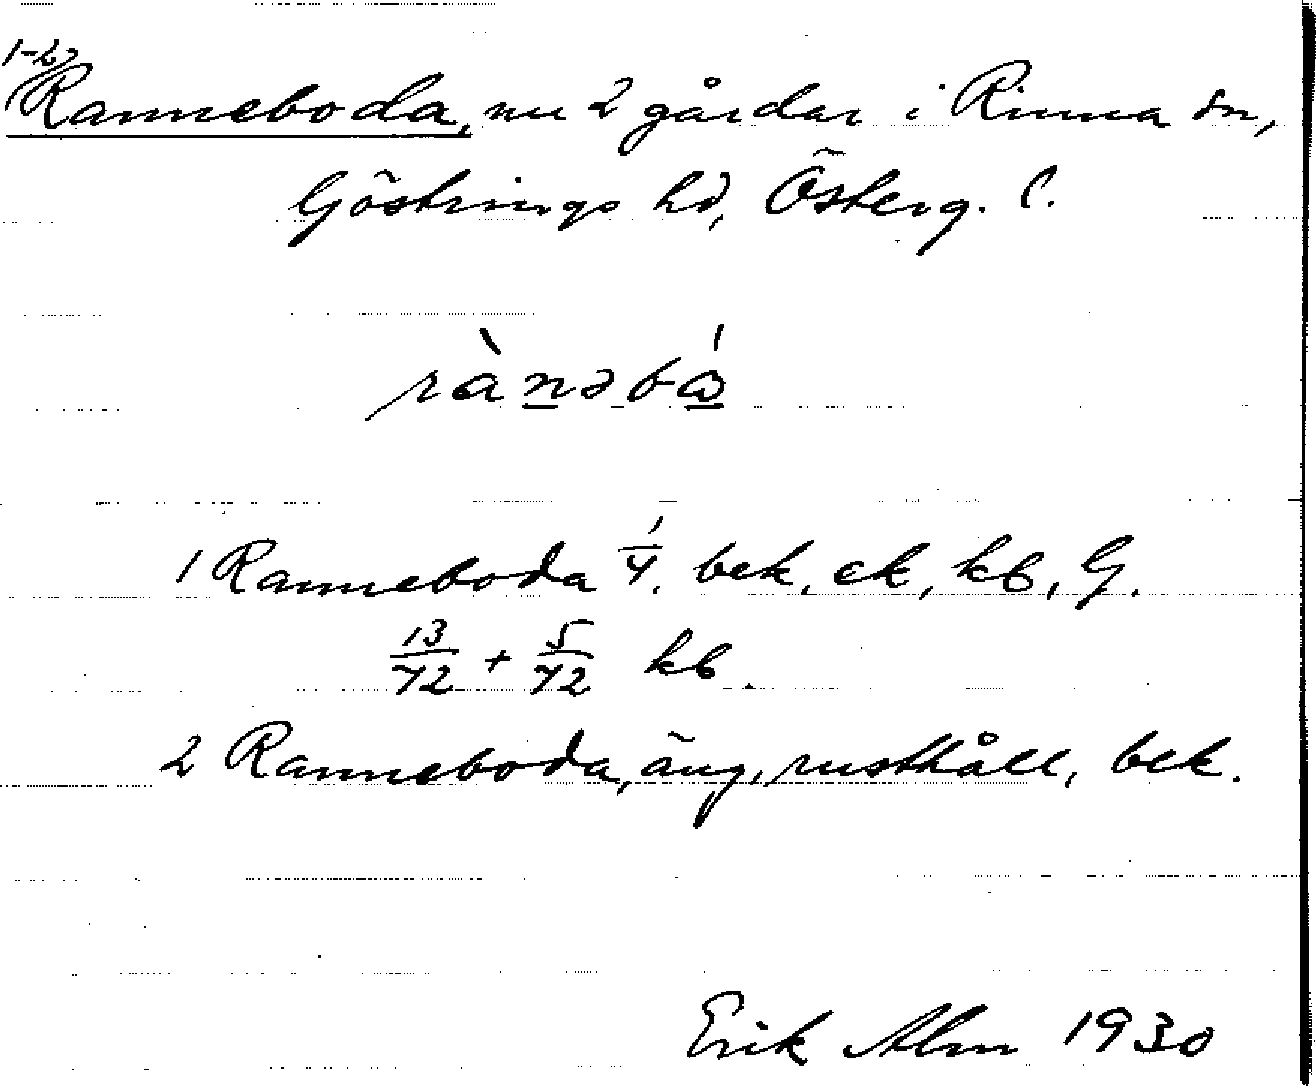 1-2
Ranneboda, nu 2 gårdar i Rinna sn,
Göstrings hd, Österg. l.
rànəbá
1 Ranneboda 1/4. bek, ek, kb, G.
13/72 + 5/72 kb.
2 Ranneboda, äng, rusthåll, bek.
Erik Alm 1930